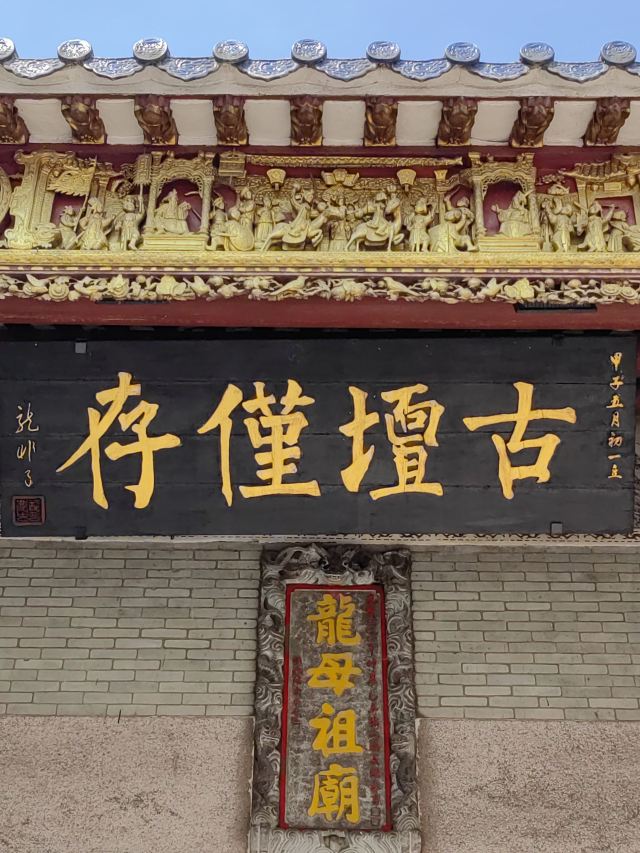 古壇僅存
甲子五月初一立
龍母祖廟